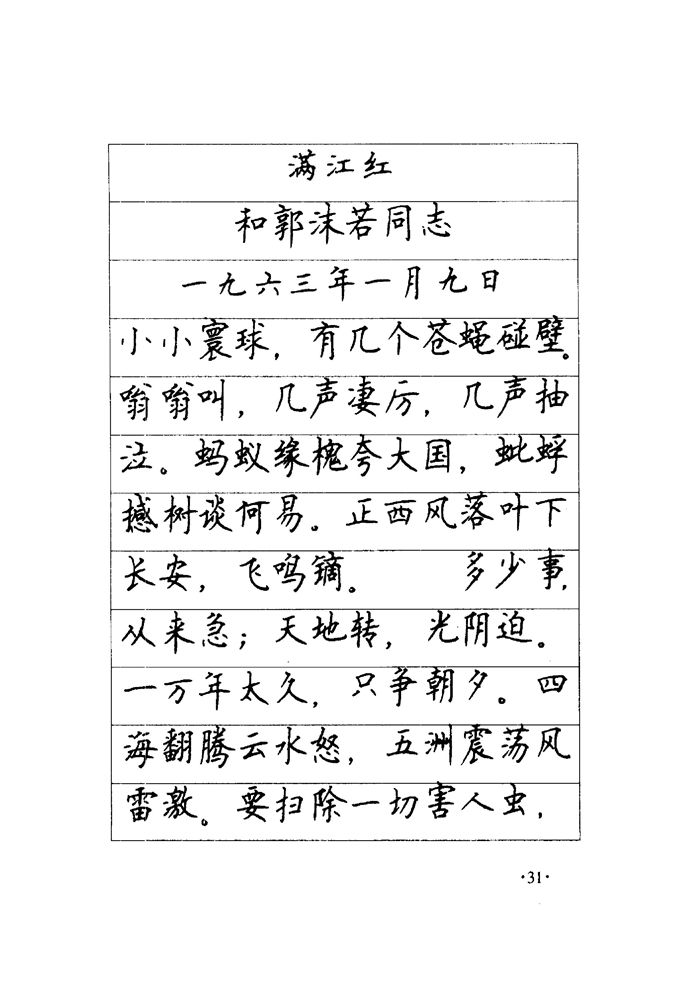 满江红
和郭沫若同志
一九六三年一月九日
小小寰球，有几个苍蝇碰壁。
嗡嗡叫，几声凄厉，几声抽
泣。蚂蚁缘槐夸大国，蚍蜉
撼树谈何易。正西风落叶下
长安，飞鸣镝。 多少事，
从来急；天地转，光阴迫。
一万年太久，只争朝夕。四
海翻腾云水怒，五洲震荡风
雷激。要扫除一切害人虫，
·31·